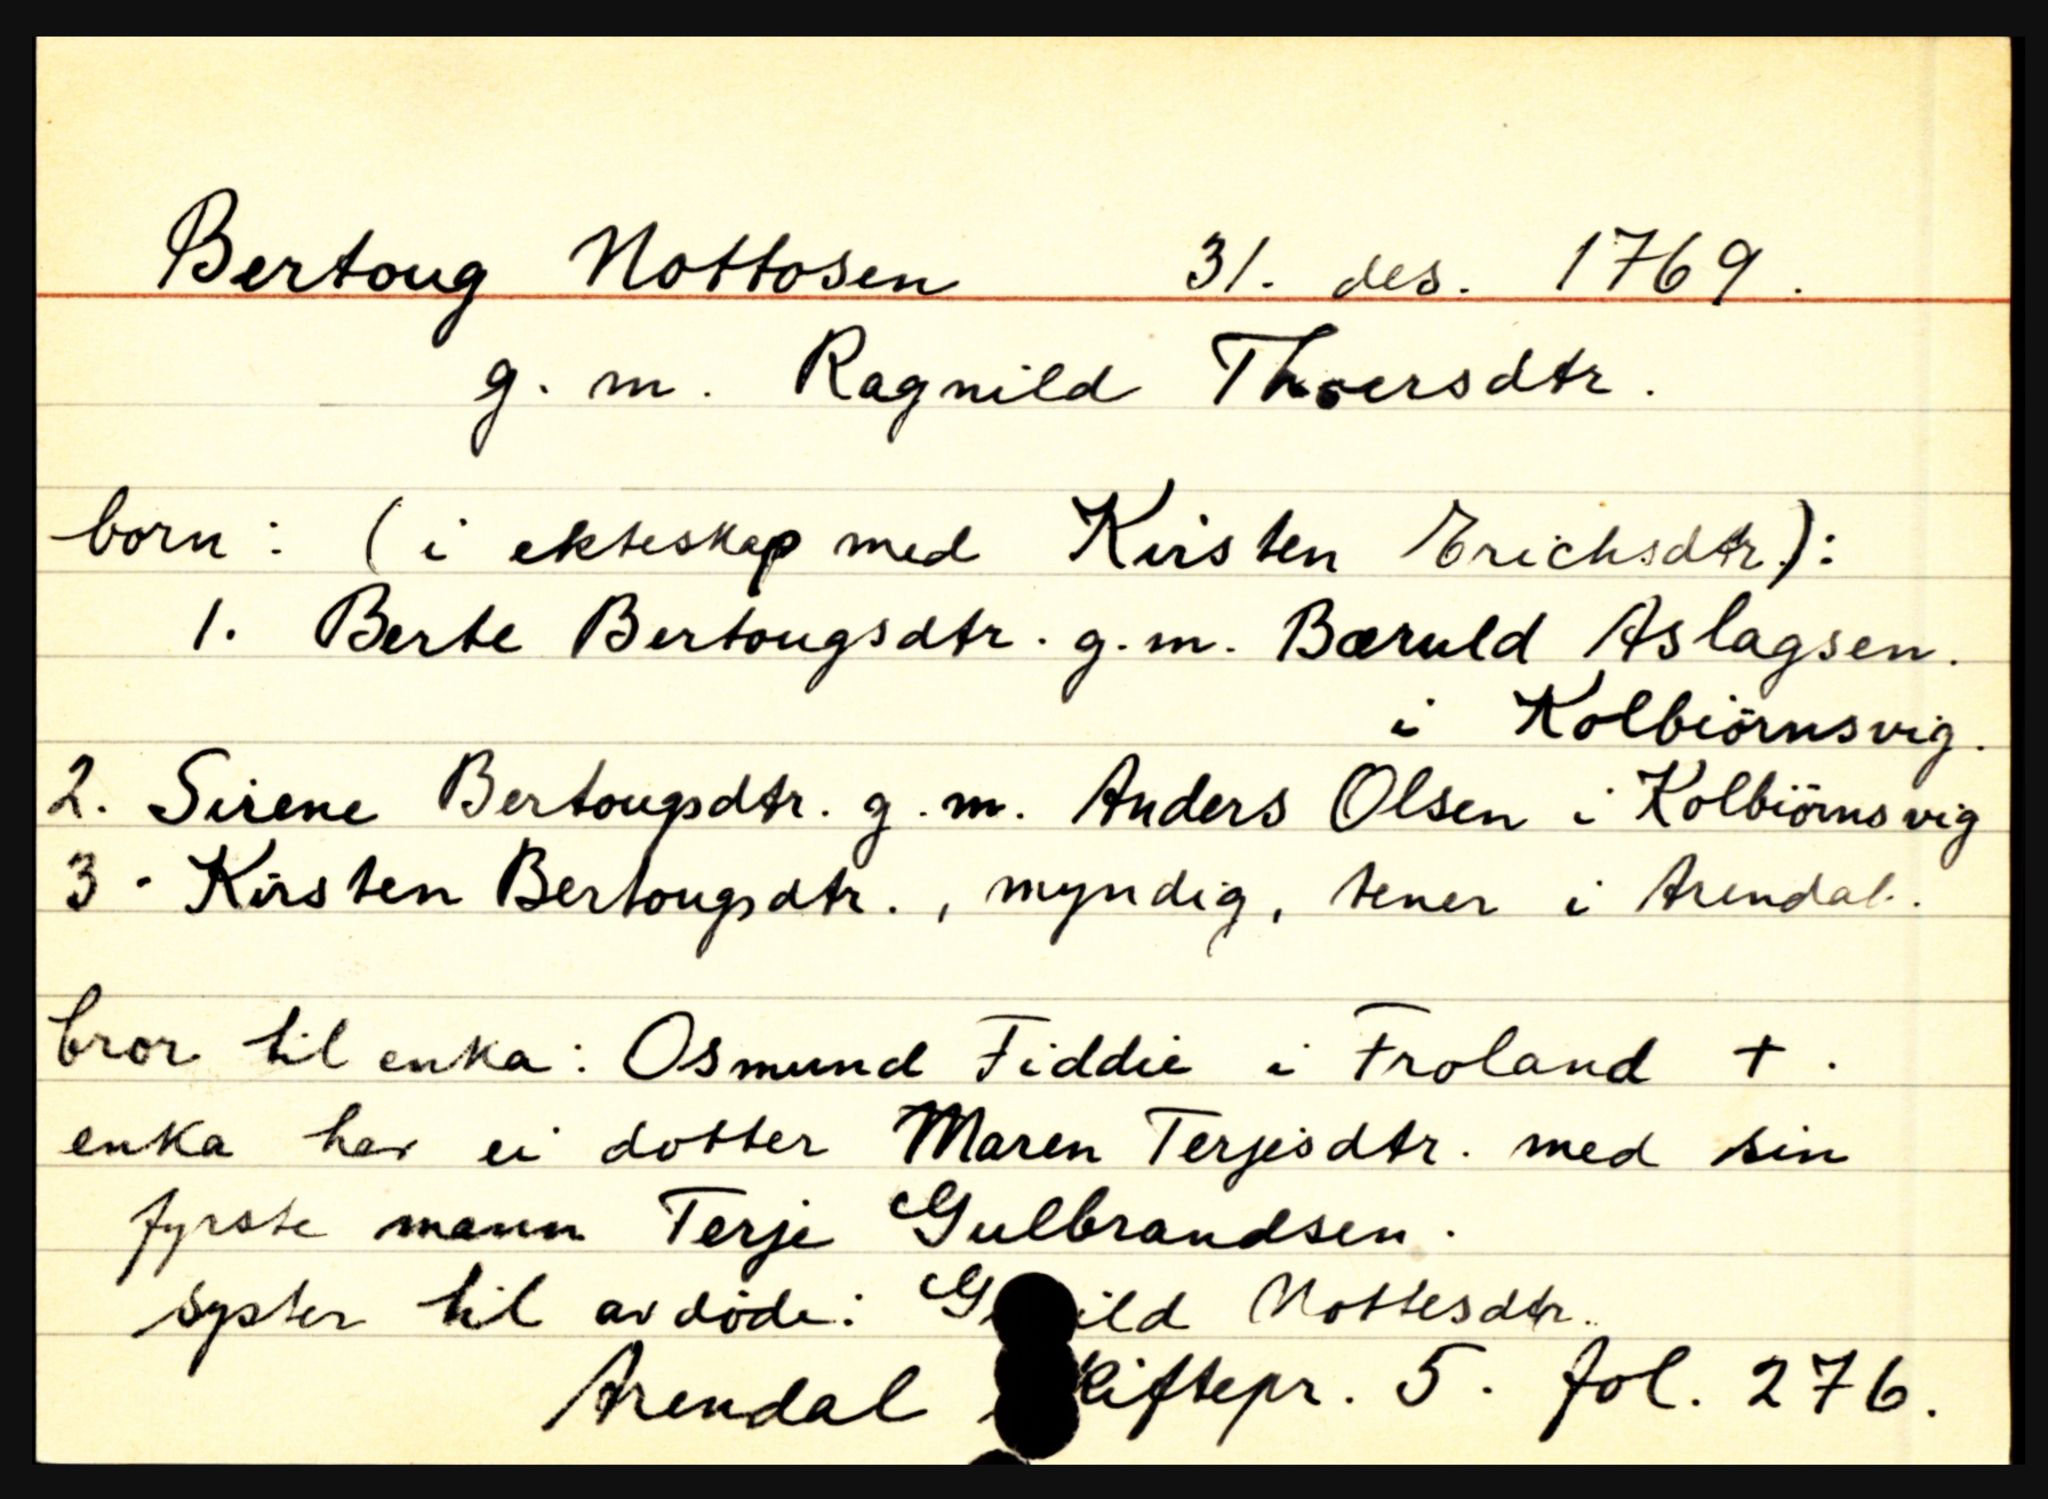 Bertoug Nottosen 31. des. 1769.
g. m. Ragnild Thoersdtr.
born: (i ekteskap med Kirsten Erichsdtr.):
1. Berte Bertougsdtr. g. m. Bæruld Aslagsen.
i Kolbiörnsvig.
2. Sirene Bertougsdtr. g. m. Anders Olsen i Kolbiörnsvig
3. Kirsten Bertougsdtr., myndig, tener i Arendal.
bror til enka: Osmund Fiddie i Froland †.
enka har ei dotter Maren Terjesdtr. med sin
fyrste mann Terje Gulbrandsen.
syster til avdöde: Nottesdtr.
Arendal 5. fol. 276.